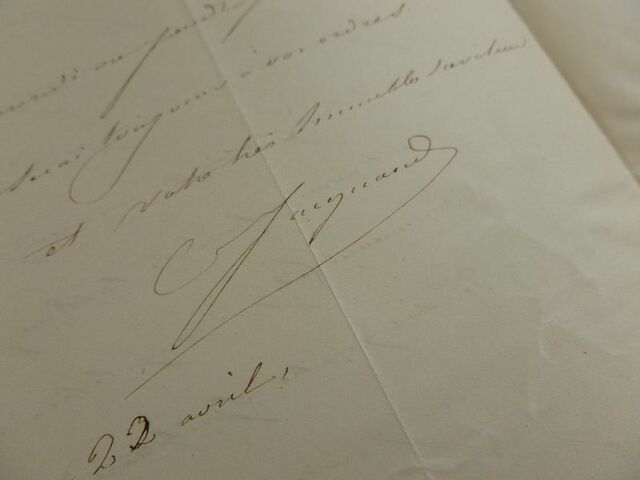 ou jeudi
serai toujours à vos ordres
et votre très humble serviteur
C Jacquand
22 avril,